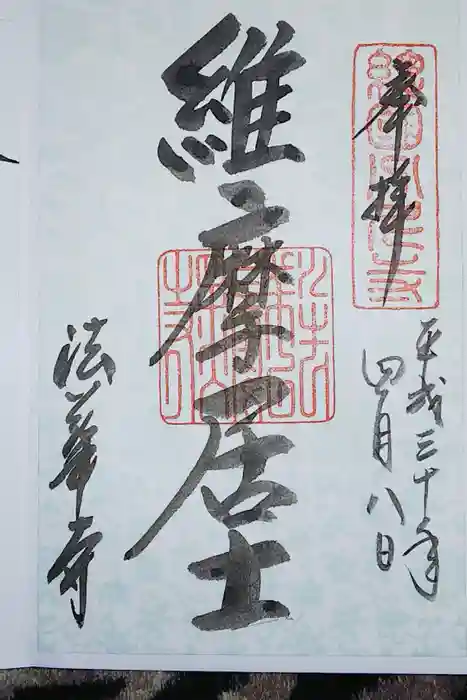 奉拝
平成三十年
四月八日
維摩居士
法華寺